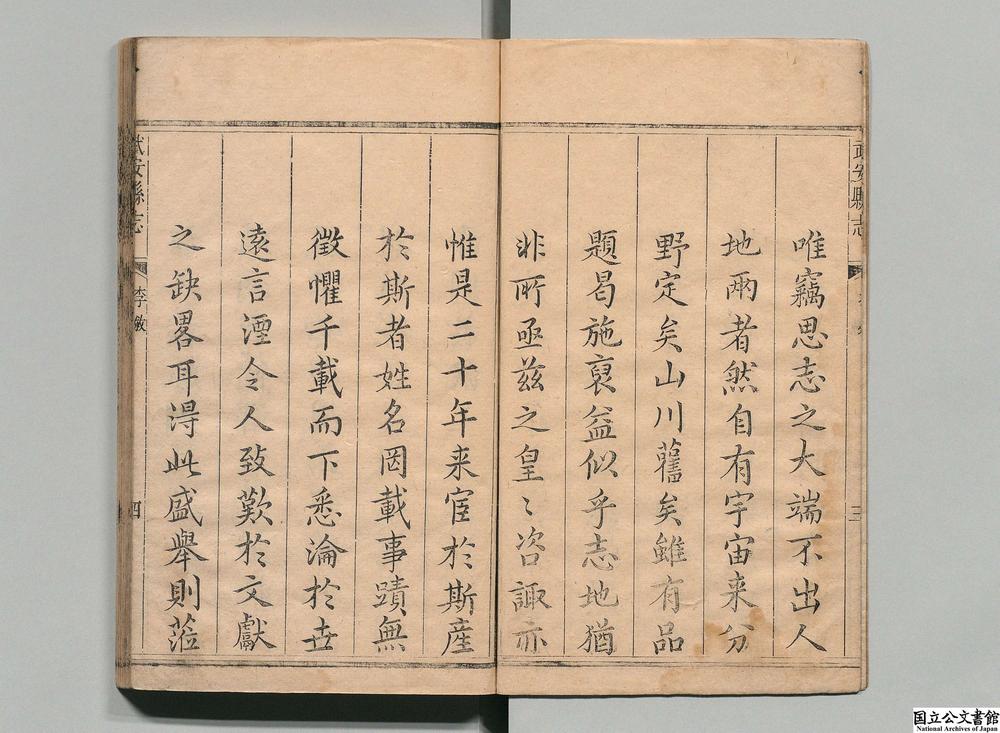 武安縣志
三
唯竊思志之大端不出人
地兩者然自有宇宙来分
野定矣山川舊矣雖有品
題曷施裒益似乎志地猶
非所亟茲之皇〻咨諏亦
惟是二十年来宦於斯産
於斯者姓名罔載事蹟無
徵懼千載而下悉淪於丗
遠言湮令人致歎於文獻
之缺畧耳得此盛舉則蒞
武安縣志
李敏
四
国立公文書館
National Archives of Japan